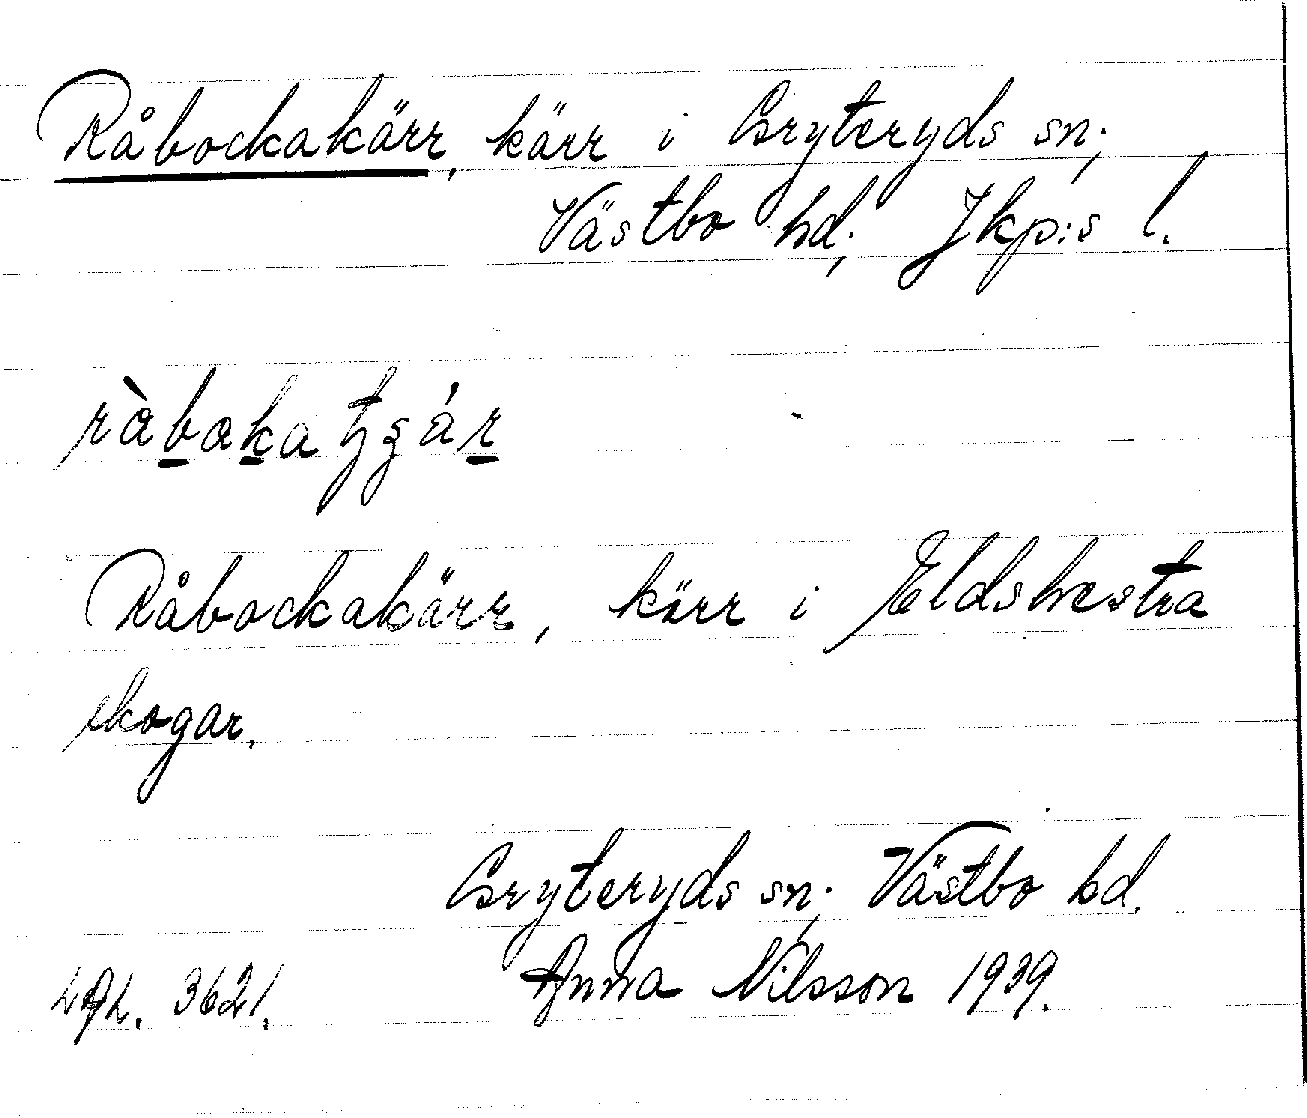 Råbockakärr, kärr i Gryteryds sn;
Västbo hd; Jkp:s l.
Råbockakärr, kärr i Eldshestra
skogar.
Gryteryds sn; Västbo hd.
LAL. 3621. Anna Nilsson 1939.